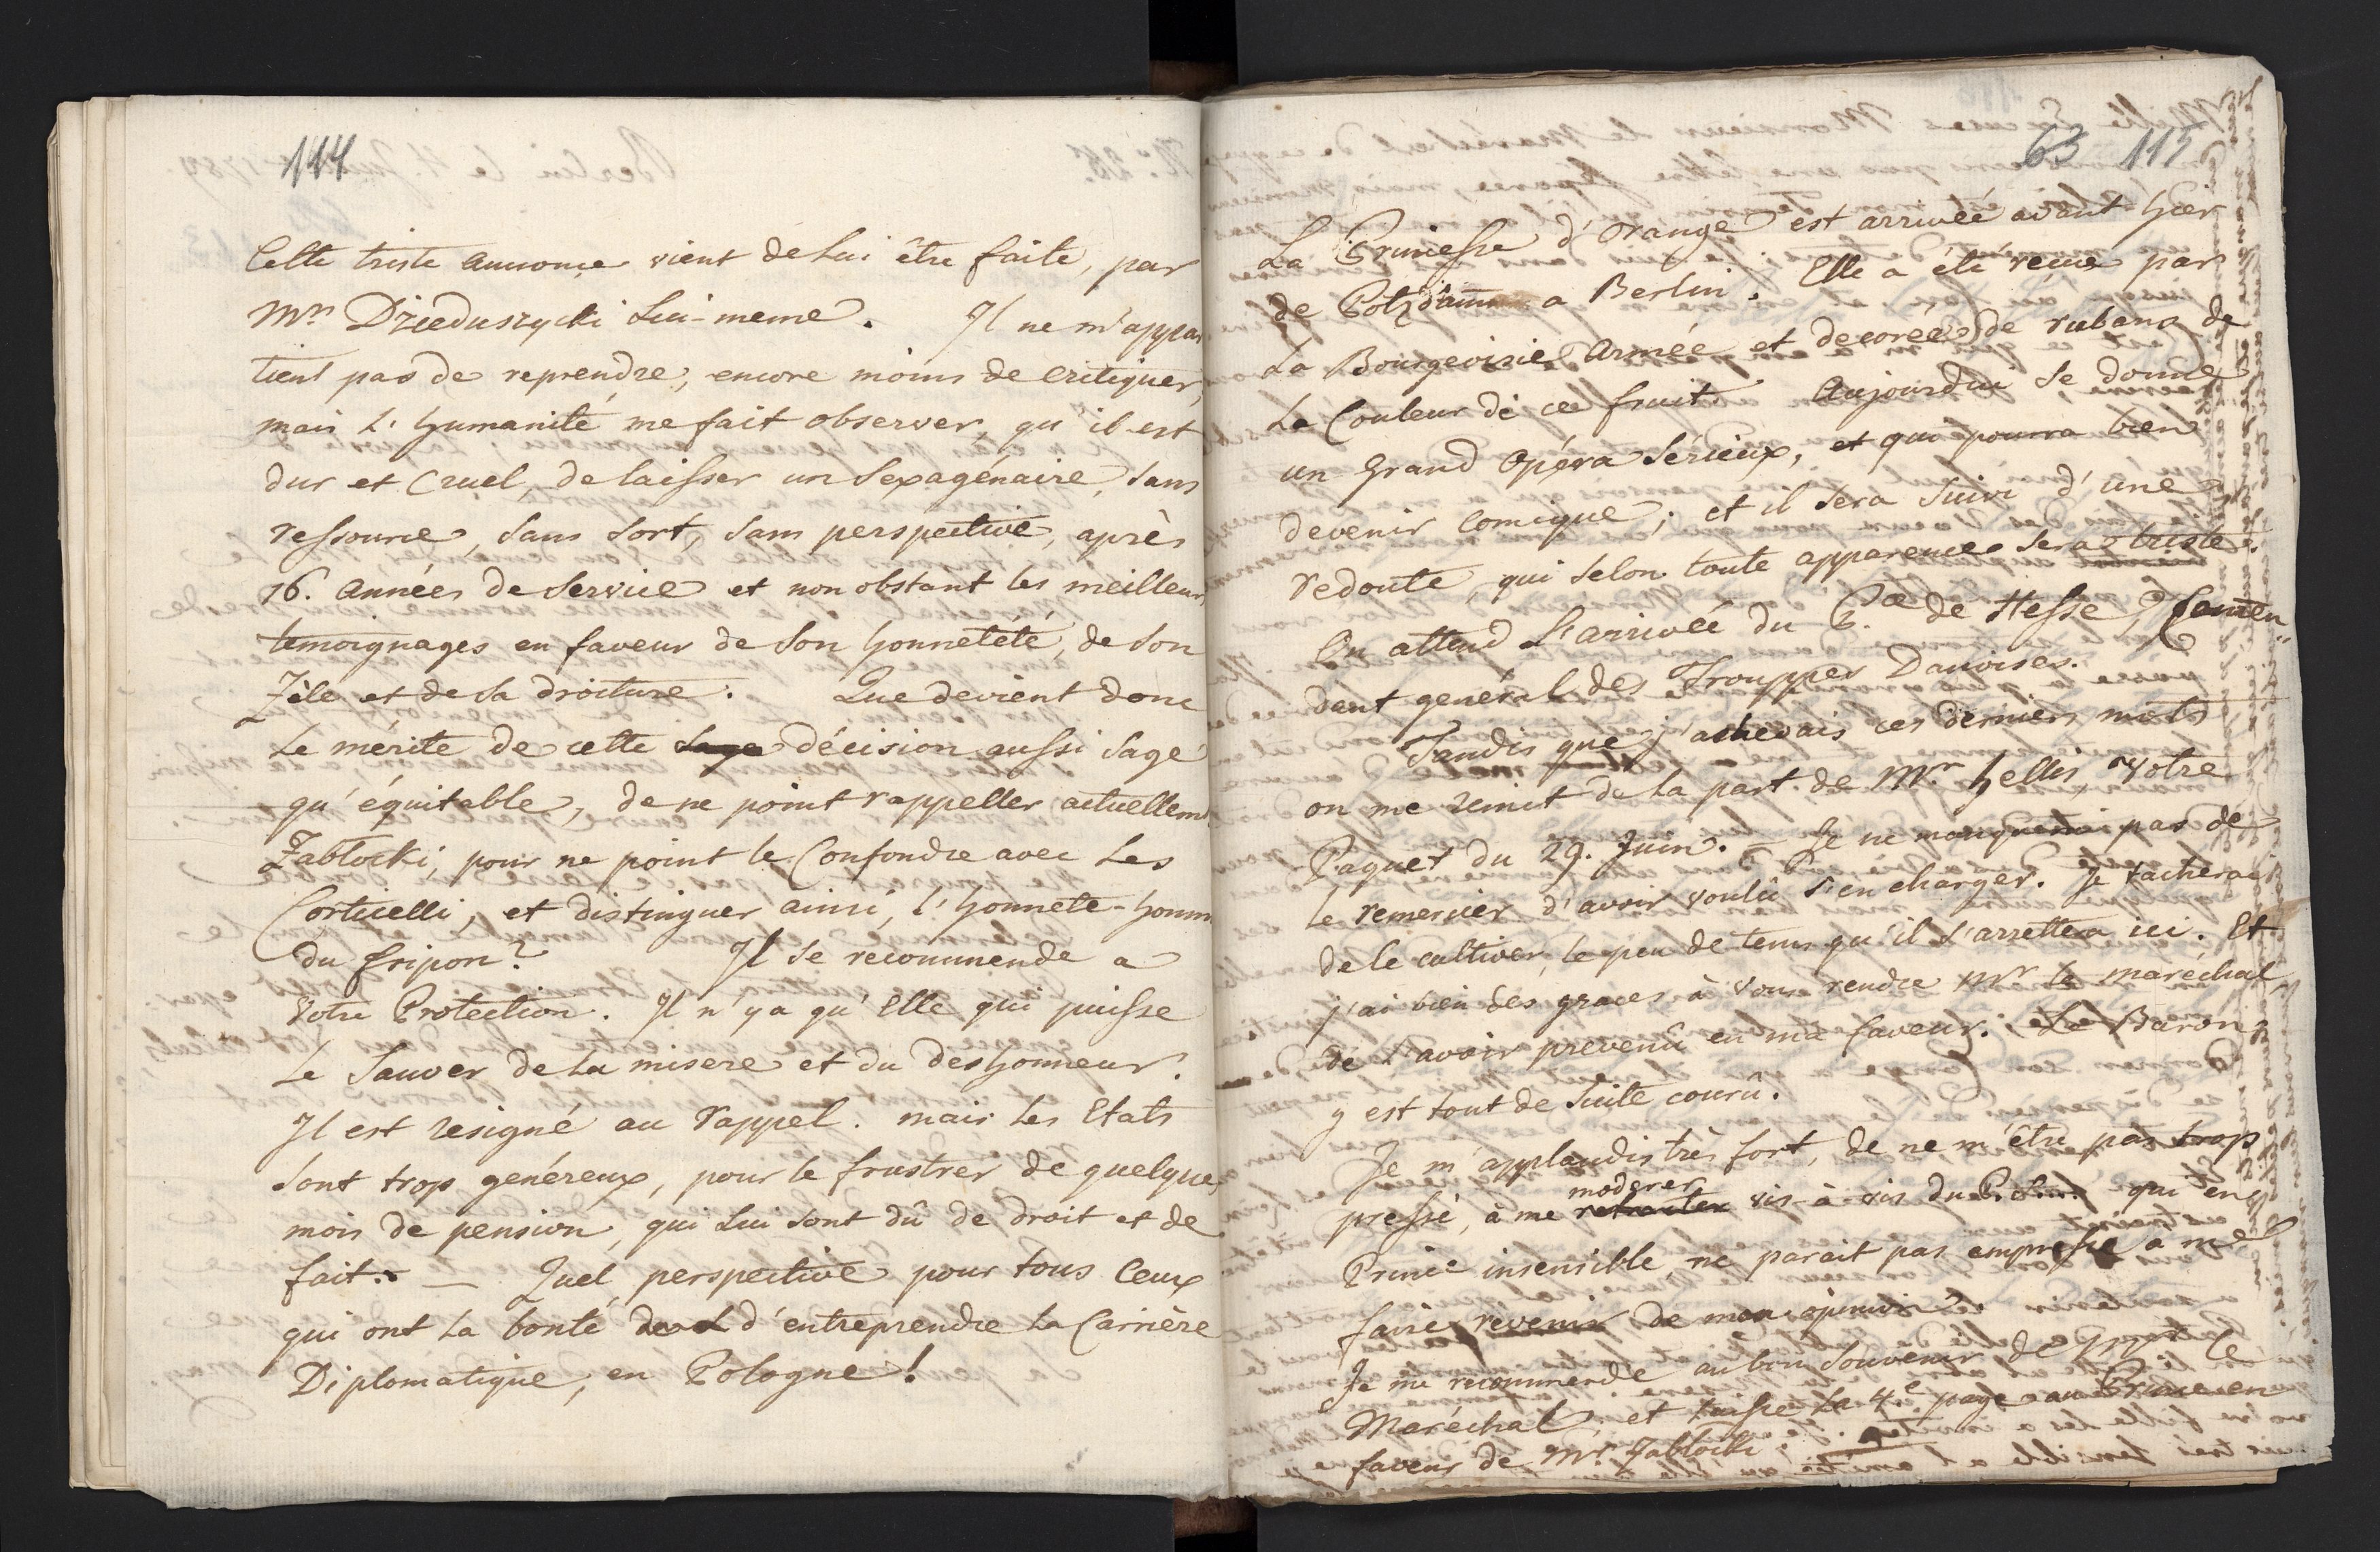 144
Cette triste annonce vient de Lui être faite, par
Mr. Dzieduszycki Lui-meme. Il ne m'appar
tient pas de reprendre, encore moins de critiquer,
mais l'humanité me fait observer, qu'il est
dur et cruel, de laisser un Sexagénaire, sans
ressource, sans sort, sans perspective, après
16. années de Service et non obstant les meilleurs
temoignages en faveur de son honnêteté, de son
Zèle et de sa droiture. Que devient donc
le mérite de cette sage décision aussi sage
qu'équitable, de ne point rappeller actuellemt
Zabłocki, pour ne point le Confondre avec les
Corticelli, et distinguer ainsi, l'honnete-homm
du fripon? Il se recommende a
Votre Protection. Il n'y a qu'Elle qui puisse
le Sauver de la misere et du deshonneur.
Il est resigné au rappel. mais les Etats
sont trop genéreux, pour le frustrer de quelques
mois de pension, qui Lui sont dû de droit et de
fait. — Quel perspective pour tous Ceux
qui ont la bonté d'entreprendre la Carrière
Diplomatique, en Pologne!
63 115
La Princesse d'Orange est arrivée avant-hier
de Potzdamm a Berlin. Elle a été reçue par
la Bourgeoisie Armée et decorée de rubans de
la Couleur de ce fruit. Aujourdui se donne
un grand Opéra Sérieux, et qui pourra bien
devenir comique; et il sera suivi d'une
redoute, qui selon toute apparence sera triste.
On attend l'arrivée du Pce de Hesse,
dant genéral des Trouppes Danoises.
Tandis que j'achevais ces derniers mots
on me remit de la part de Mr. hellis, Votre
Paquet du 29. Juin. — Je ne manquerai pas de
le remercier d'avoir voulû s'en charger. Je tacherai
de le cultiver, le peu de tems qu'il s'arrettera ici. Et
j'ai bien des graces à Vous rendre Mr le maréchal,
de l'avoir prevenû en ma faveur. Le Baron
y est tout de suite courû.
Je m'applaudis très fort, de ne m'être pas trop
moderer
pressé, à me retracter vis-à-vis du P. qui en
Prince insensible ne parait pas empressé a me
faire revenir de mon opinion.
Je me recommende au bon souvenir de Mr le
Maréchal, et laisse la 4e page au Prince en
faveur de Mr Zabłocki.